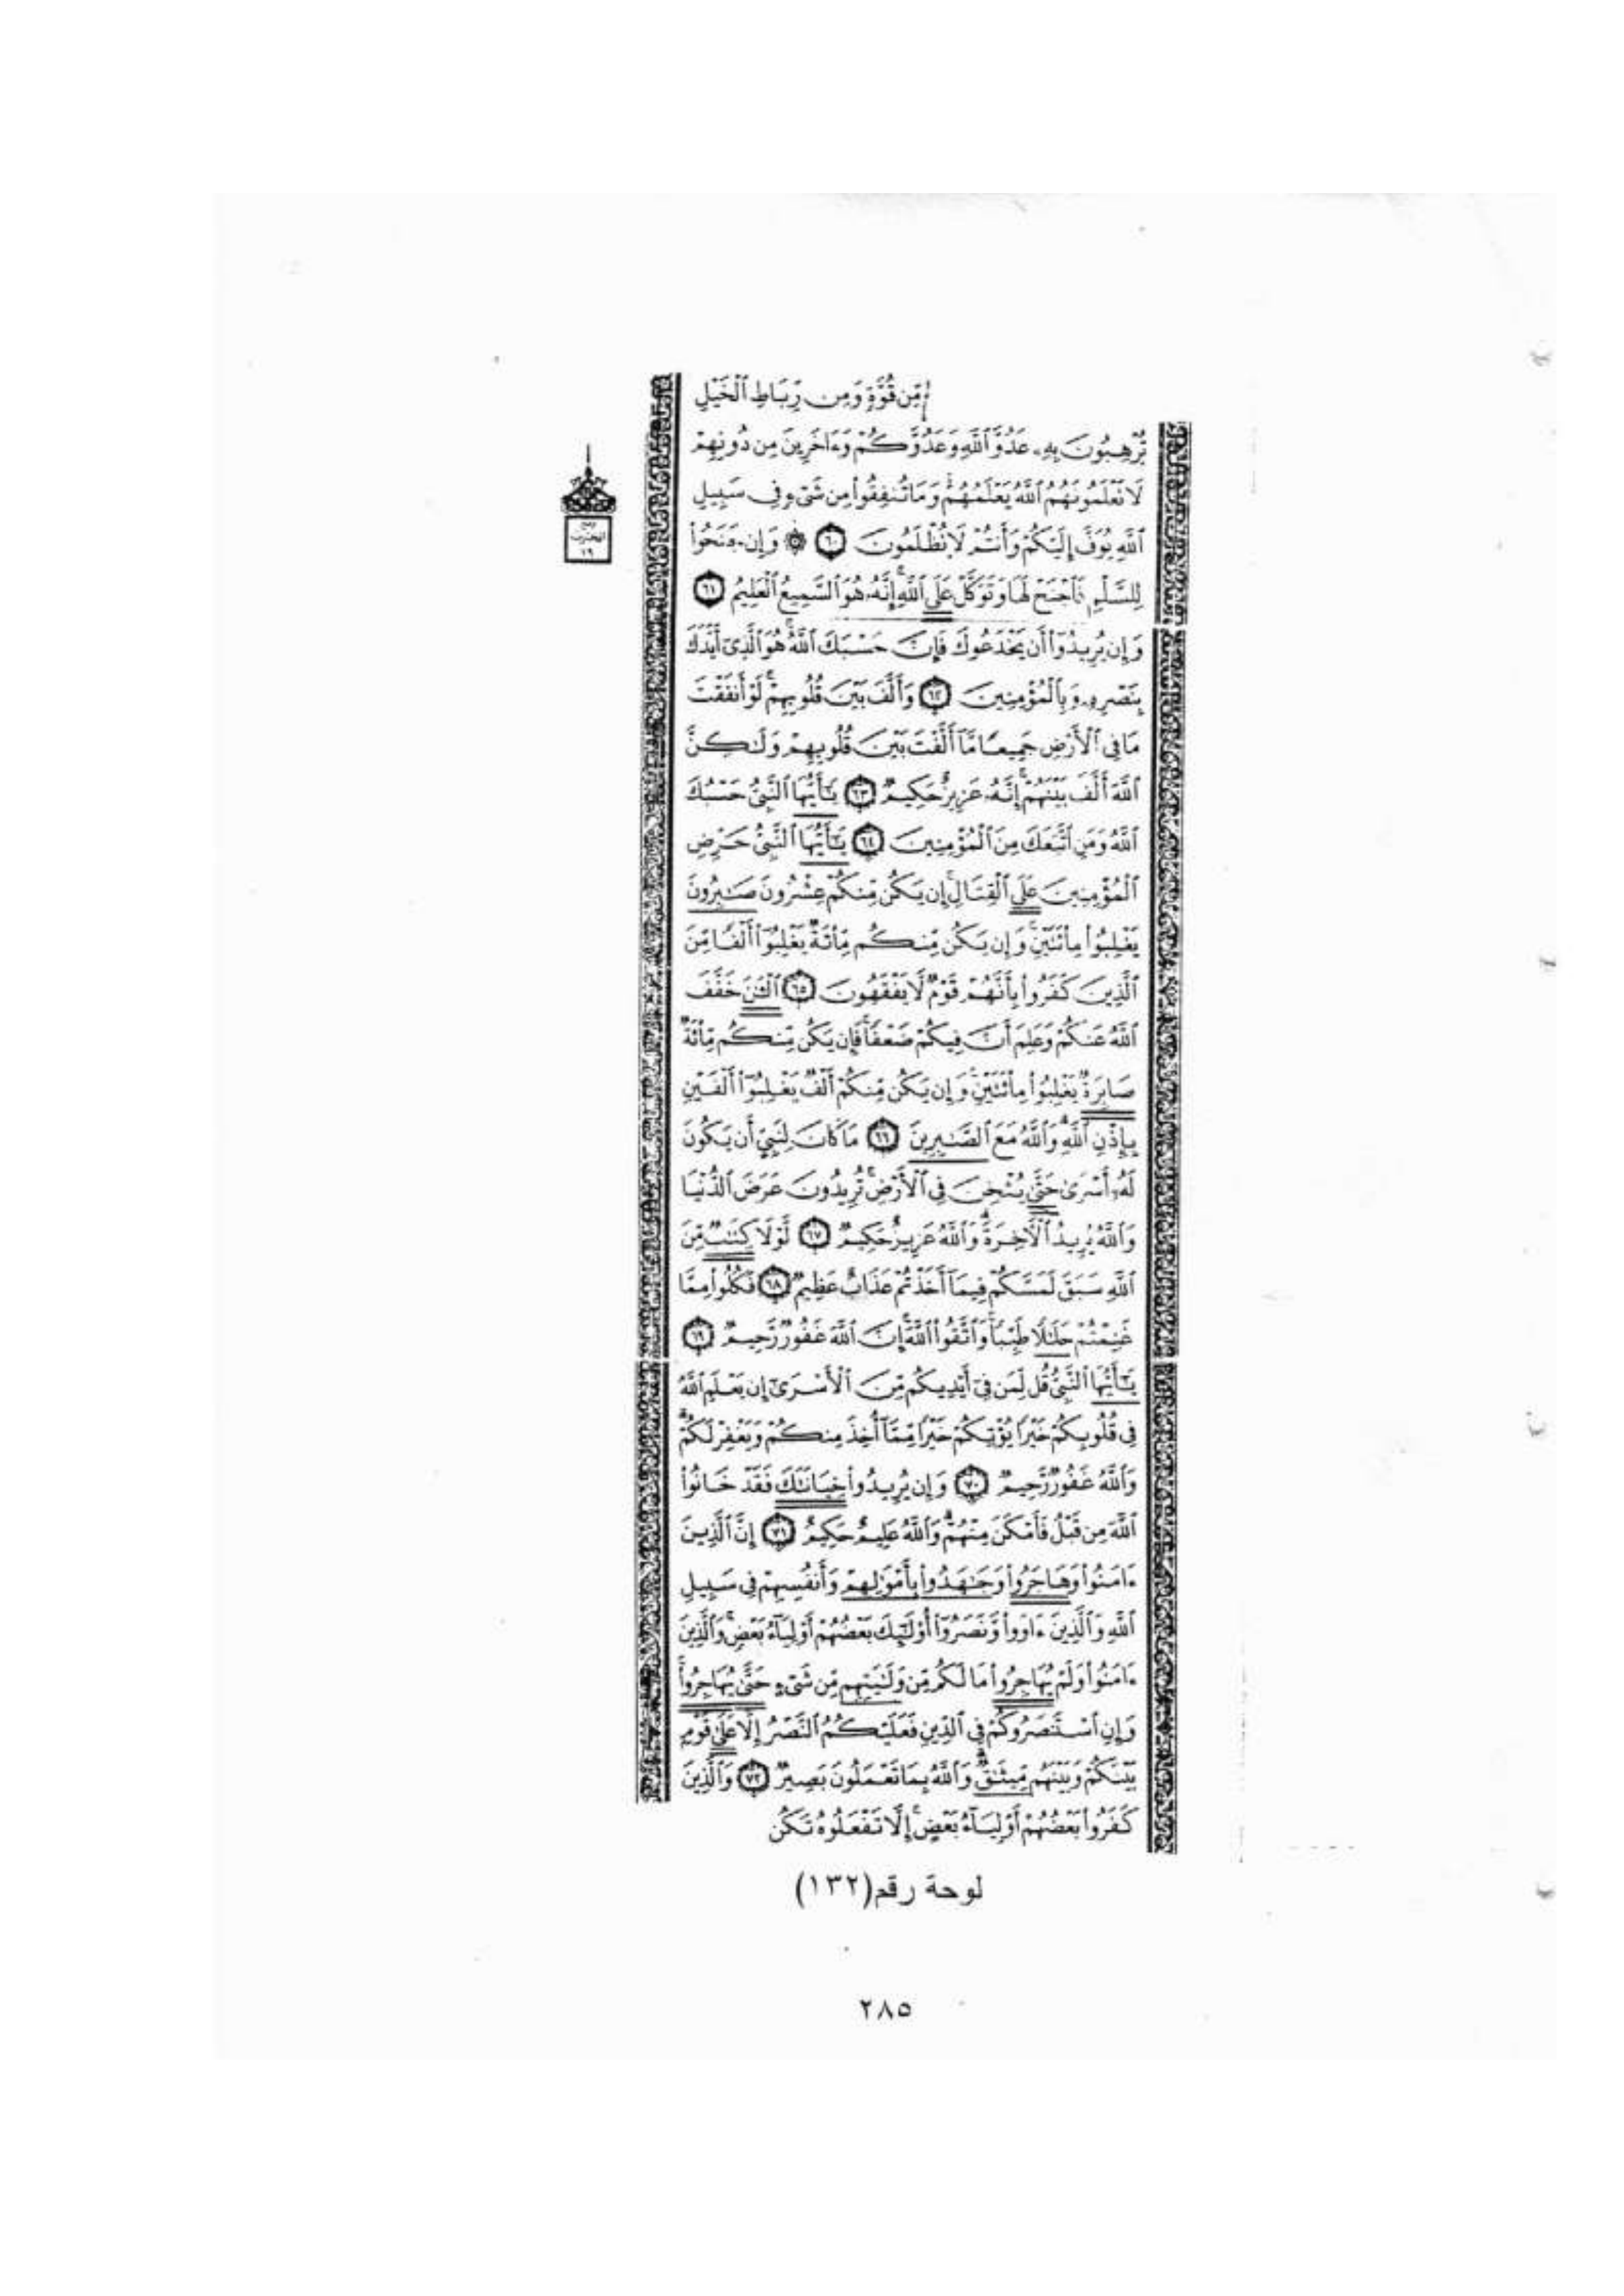 مِّن قُوَّةٍ وَمِن رِّبَاطِ ٱلْخَيْلِ
تُرْهِبُونَ بِهِۦ عَدُوَّ ٱللَّهِ وَعَدُوَّكُمْ وَءَاخَرِينَ مِن دُونِهِمْ
لَا تَعْلَمُونَهُمُ ٱللَّهُ يَعْلَمُهُمْ ۚ وَمَا تُنفِقُوا۟ مِن شَىْءٍ فِى سَبِيلِ
ٱللَّهِ يُوَفَّ إِلَيْكُمْ وَأَنتُمْ لَا تُظْلَمُونَ ٦٠ ۞ وَإِن جَنَحُوا۟
لِلسَّلْمِ فَٱجْنَحْ لَهَا وَتَوَكَّلْ عَلَى ٱللَّهِ ۚ إِنَّهُۥ هُوَ ٱلسَّمِيعُ ٱلْعَلِيمُ ٦١
ربع
الحزب
١٩
وَإِن يُرِيدُوٓا۟ أَن يَخْدَعُوكَ فَإِنَّ حَسْبَكَ ٱللَّهُ ۚ هُوَ ٱلَّذِىٓ أَيَّدَكَ
بِنَصْرِهِۦ وَبِٱلْمُؤْمِنِينَ ٦٢ وَأَلَّفَ بَيْنَ قُلُوبِهِمْ ۚ لَوْ أَنفَقْتَ
مَا فِى ٱلْأَرْضِ جَمِيعًا مَّآ أَلَّفْتَ بَيْنَ قُلُوبِهِمْ وَلَـٰكِنَّ
ٱللَّهَ أَلَّفَ بَيْنَهُمْ ۚ إِنَّهُۥ عَزِيزٌ حَكِيمٌ ٦٣ يَـٰٓأَيُّهَا ٱلنَّبِىُّ حَسْبُكَ
ٱللَّهُ وَمَنِ ٱتَّبَعَكَ مِنَ ٱلْمُؤْمِنِينَ ٦٤ يَـٰٓأَيُّهَا ٱلنَّبِىُّ حَرِّضِ
ٱلْمُؤْمِنِينَ عَلَى ٱلْقِتَالِ ۚ إِن يَكُن مِّنكُمْ عِشْرُونَ صَـٰبِرُونَ
يَغْلِبُوا۟ مِا۟ئَتَيْنِ ۚ وَإِن يَكُن مِّنكُم مِّا۟ئَةٌ يَغْلِبُوٓا۟ أَلْفًا مِّنَ
ٱلَّذِينَ كَفَرُوا۟ بِأَنَّهُمْ قَوْمٌ لَّا يَفْقَهُونَ ٦٥ ٱلْـَٔـٰنَ خَفَّفَ
ٱللَّهُ عَنكُمْ وَعَلِمَ أَنَّ فِيكُمْ ضَعْفًا ۚ فَإِن يَكُن مِّنكُم مِّا۟ئَةٌ
صَابِرَةٌ يَغْلِبُوا۟ مِا۟ئَتَيْنِ ۚ وَإِن يَكُن مِّنكُمْ أَلْفٌ يَغْلِبُوٓا۟ أَلْفَيْنِ
بِإِذْنِ ٱللَّهِ ۗ وَٱللَّهُ مَعَ ٱلصَّـٰبِرِينَ ٦٦ مَا كَانَ لِنَبِىٍّ أَن يَكُونَ
لَهُۥٓ أَسْرَىٰ حَتَّىٰ يُثْخِنَ فِى ٱلْأَرْضِ ۚ تُرِيدُونَ عَرَضَ ٱلدُّنْيَا
وَٱللَّهُ يُرِيدُ ٱلْـَٔاخِرَةَ ۗ وَٱللَّهُ عَزِيزٌ حَكِيمٌ ٦٧ لَّوْلَا كِتَـٰبٌ مِّنَ
ٱللَّهِ سَبَقَ لَمَسَّكُمْ فِيمَآ أَخَذْتُمْ عَذَابٌ عَظِيمٌ ٦٨ فَكُلُوا۟ مِمَّا
غَنِمْتُمْ حَلَـٰلًا طَيِّبًا ۚ وَٱتَّقُوا۟ ٱللَّهَ ۚ إِنَّ ٱللَّهَ غَفُورٌ رَّحِيمٌ ٦٩
يَـٰٓأَيُّهَا ٱلنَّبِىُّ قُل لِّمَن فِىٓ أَيْدِيكُم مِّنَ ٱلْأَسْرَىٰٓ إِن يَعْلَمِ ٱللَّهُ
فِى قُلُوبِكُمْ خَيْرًا يُؤْتِكُمْ خَيْرًا مِّمَّآ أُخِذَ مِنكُمْ وَيَغْفِرْ لَكُمْ ۗ
وَٱللَّهُ غَفُورٌ رَّحِيمٌ ٧٠ وَإِن يُرِيدُوا۟ خِيَانَتَكَ فَقَدْ خَانُوا۟
ٱللَّهَ مِن قَبْلُ فَأَمْكَنَ مِنْهُمْ ۗ وَٱللَّهُ عَلِيمٌ حَكِيمٌ ٧١ إِنَّ ٱلَّذِينَ
ءَامَنُوا۟ وَهَاجَرُوا۟ وَجَـٰهَدُوا۟ بِأَمْوَٰلِهِمْ وَأَنفُسِهِمْ فِى سَبِيلِ
ٱللَّهِ وَٱلَّذِينَ ءَاوَوا۟ وَّنَصَرُوٓا۟ أُو۟لَـٰٓئِكَ بَعْضُهُمْ أَوْلِيَآءُ بَعْضٍ ۚ وَٱلَّذِينَ
ءَامَنُوا۟ وَلَمْ يُهَاجِرُوا۟ مَا لَكُم مِّن وَلَـٰيَتِهِم مِّن شَىْءٍ حَتَّىٰ يُهَاجِرُوا۟ ۚ
وَإِنِ ٱسْتَنصَرُوكُمْ فِى ٱلدِّينِ فَعَلَيْكُمُ ٱلنَّصْرُ إِلَّا عَلَىٰ قَوْمٍۭ
بَيْنَكُمْ وَبَيْنَهُم مِّيثَـٰقٌ ۗ وَٱللَّهُ بِمَا تَعْمَلُونَ بَصِيرٌ ٧٢ وَٱلَّذِينَ
كَفَرُوا۟ بَعْضُهُمْ أَوْلِيَآءُ بَعْضٍ ۚ إِلَّا تَفْعَلُوهُ تَكُن
لوحة رقم (١٣٢)
٢٨٥